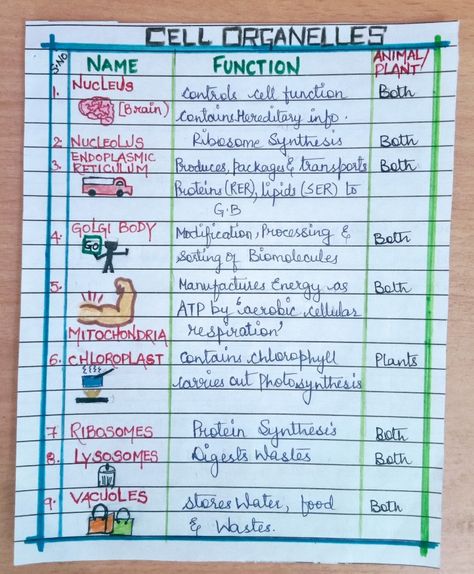 CELL ORGANELLES
S.NO NAME FUNCTION ANIMAL/
PLANT
1. NUCLEUS Controls cell function Both
[Brain] contains Hereditary info.
2. NUCLEOLUS Ribosome Synthesis Both
3. ENDOPLASMIC Produces, packages & transports Both
RETICULUM Proteins (RER), lipids (SER) to
G.B
4. GOLGI BODY Modification, Processing & Both
GO Sorting of Biomolecules
5. Manufactures Energy as Both
ATP by 'aerobic cellular
MITOCHONDRIA respiration'
6. CHLOROPLAST Contains chlorophyll Plants
carries out Photosynthesis
7 RIBOSOMES Protein Synthesis Both
8. LYSOSOMES Digests Wastes Both
9. VACUOLES Stores Water, food Both
& Wastes.